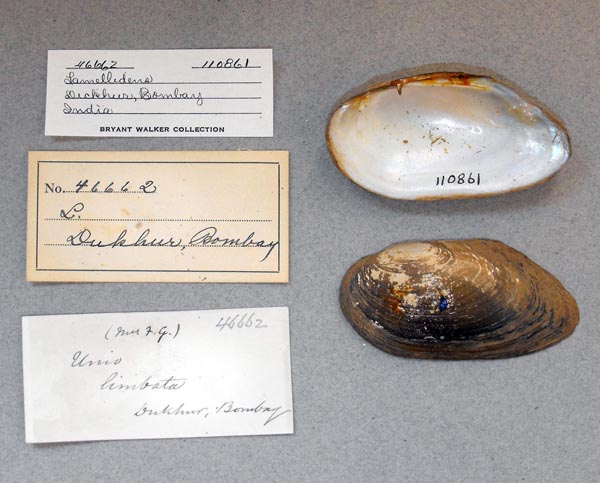 46662 110861
Lamellidens
Dukhur, Bombay
India
BRYANT WALKER COLLECTION
No. 46662
L.
Dukhur, Bombay
46662
Unio
limbata
Dukhur, Bombay
110861